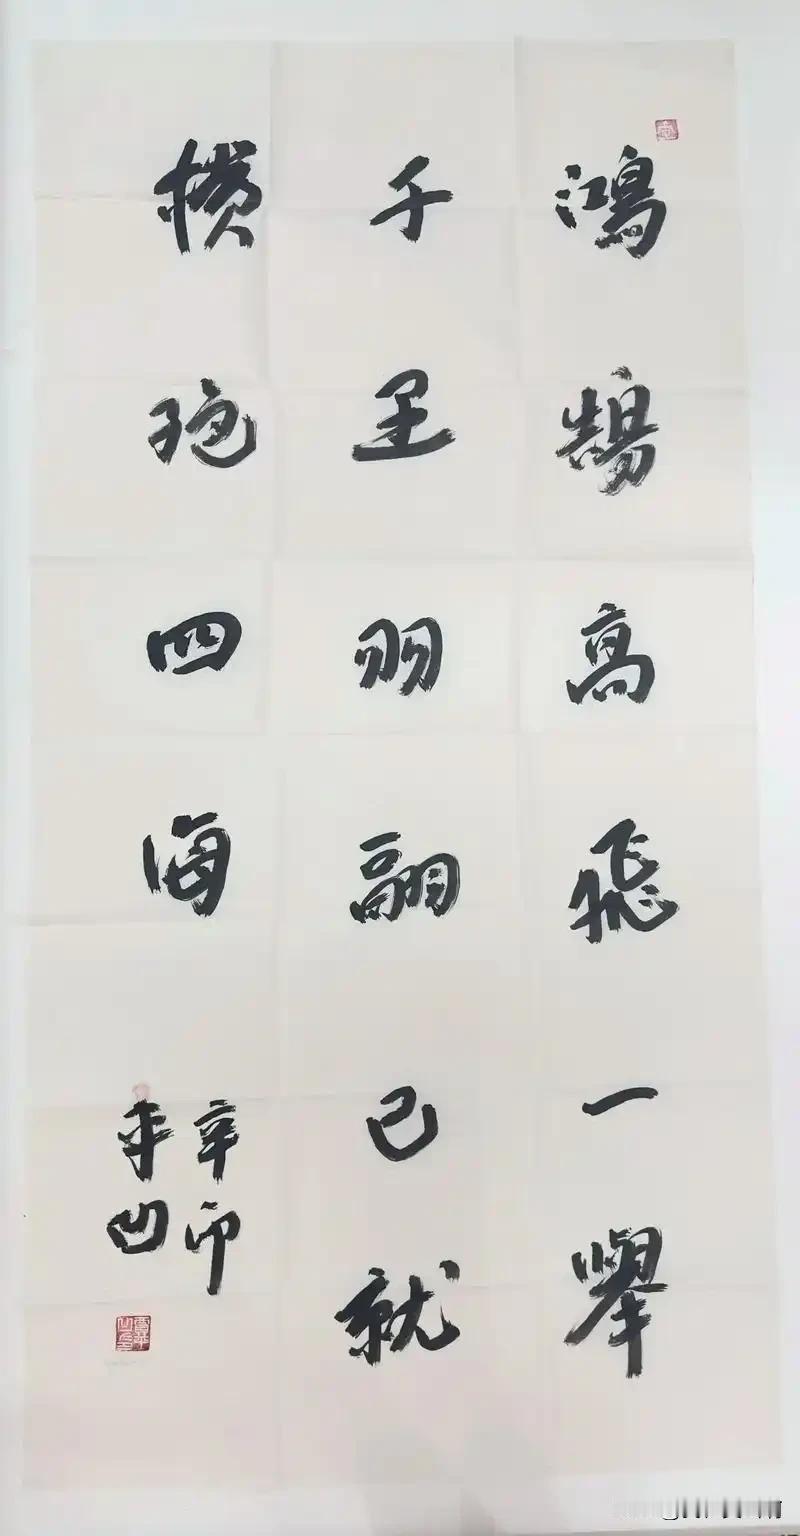 鴻鵠高飛一舉
千里羽翮已就
横絶四海
辛卯
平凹